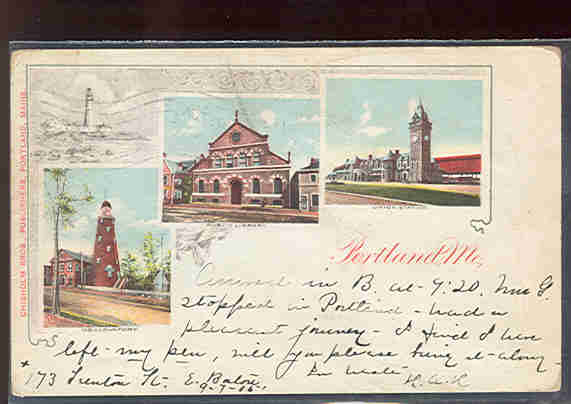 CHISHOLM BROS. PUBLISHERS, PORTLAND, MAINE
PUBLIC LIBRARY.
UNION STATION
OBSERVATORY.
Portland, Me,
in B. at - 7:20. Mrs G.
stopped in Portland - had a
pleasant journey - I find I have
left - my pen, will you please bring it - along.
H.A.R
173 Trenton St. E. Boston.
9-7-05.